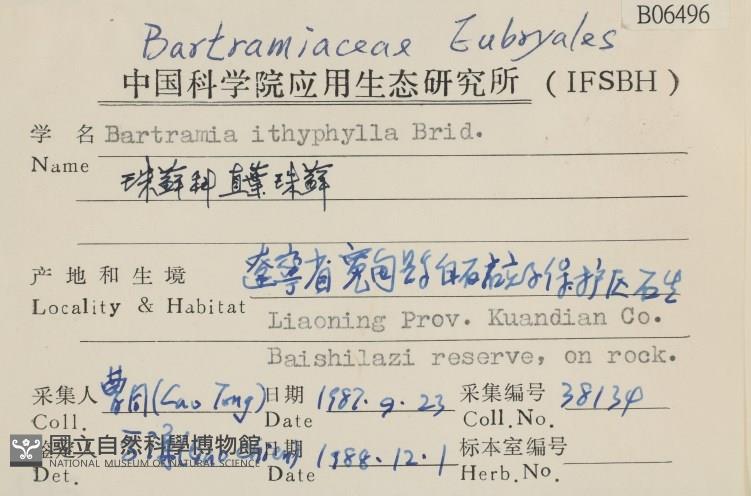 B06496
Bartramiaceae Eubryales
中国科学院应用生态研究所 (IFSBH)
学 名 Bartramia ithyphylla Brid.
Name
珠藓科 直葉珠藓
产 地 和 生 境 辽宁省宽甸县白石砬子保护区石生
Locality & Habitat Liaoning Prov. Kuandian Co.
Baishilazi reserve, on rock.
采集人 曹同 (Cao Tong) 日期 1987.9.23 采集编号 38134
Coll. Date Coll.No.
日期 1988.12.1 标本室编号
Det. Date Herb.No.
國立自然科學博物館
NATIONAL MUSEUM OF NATURAL SCIENCE